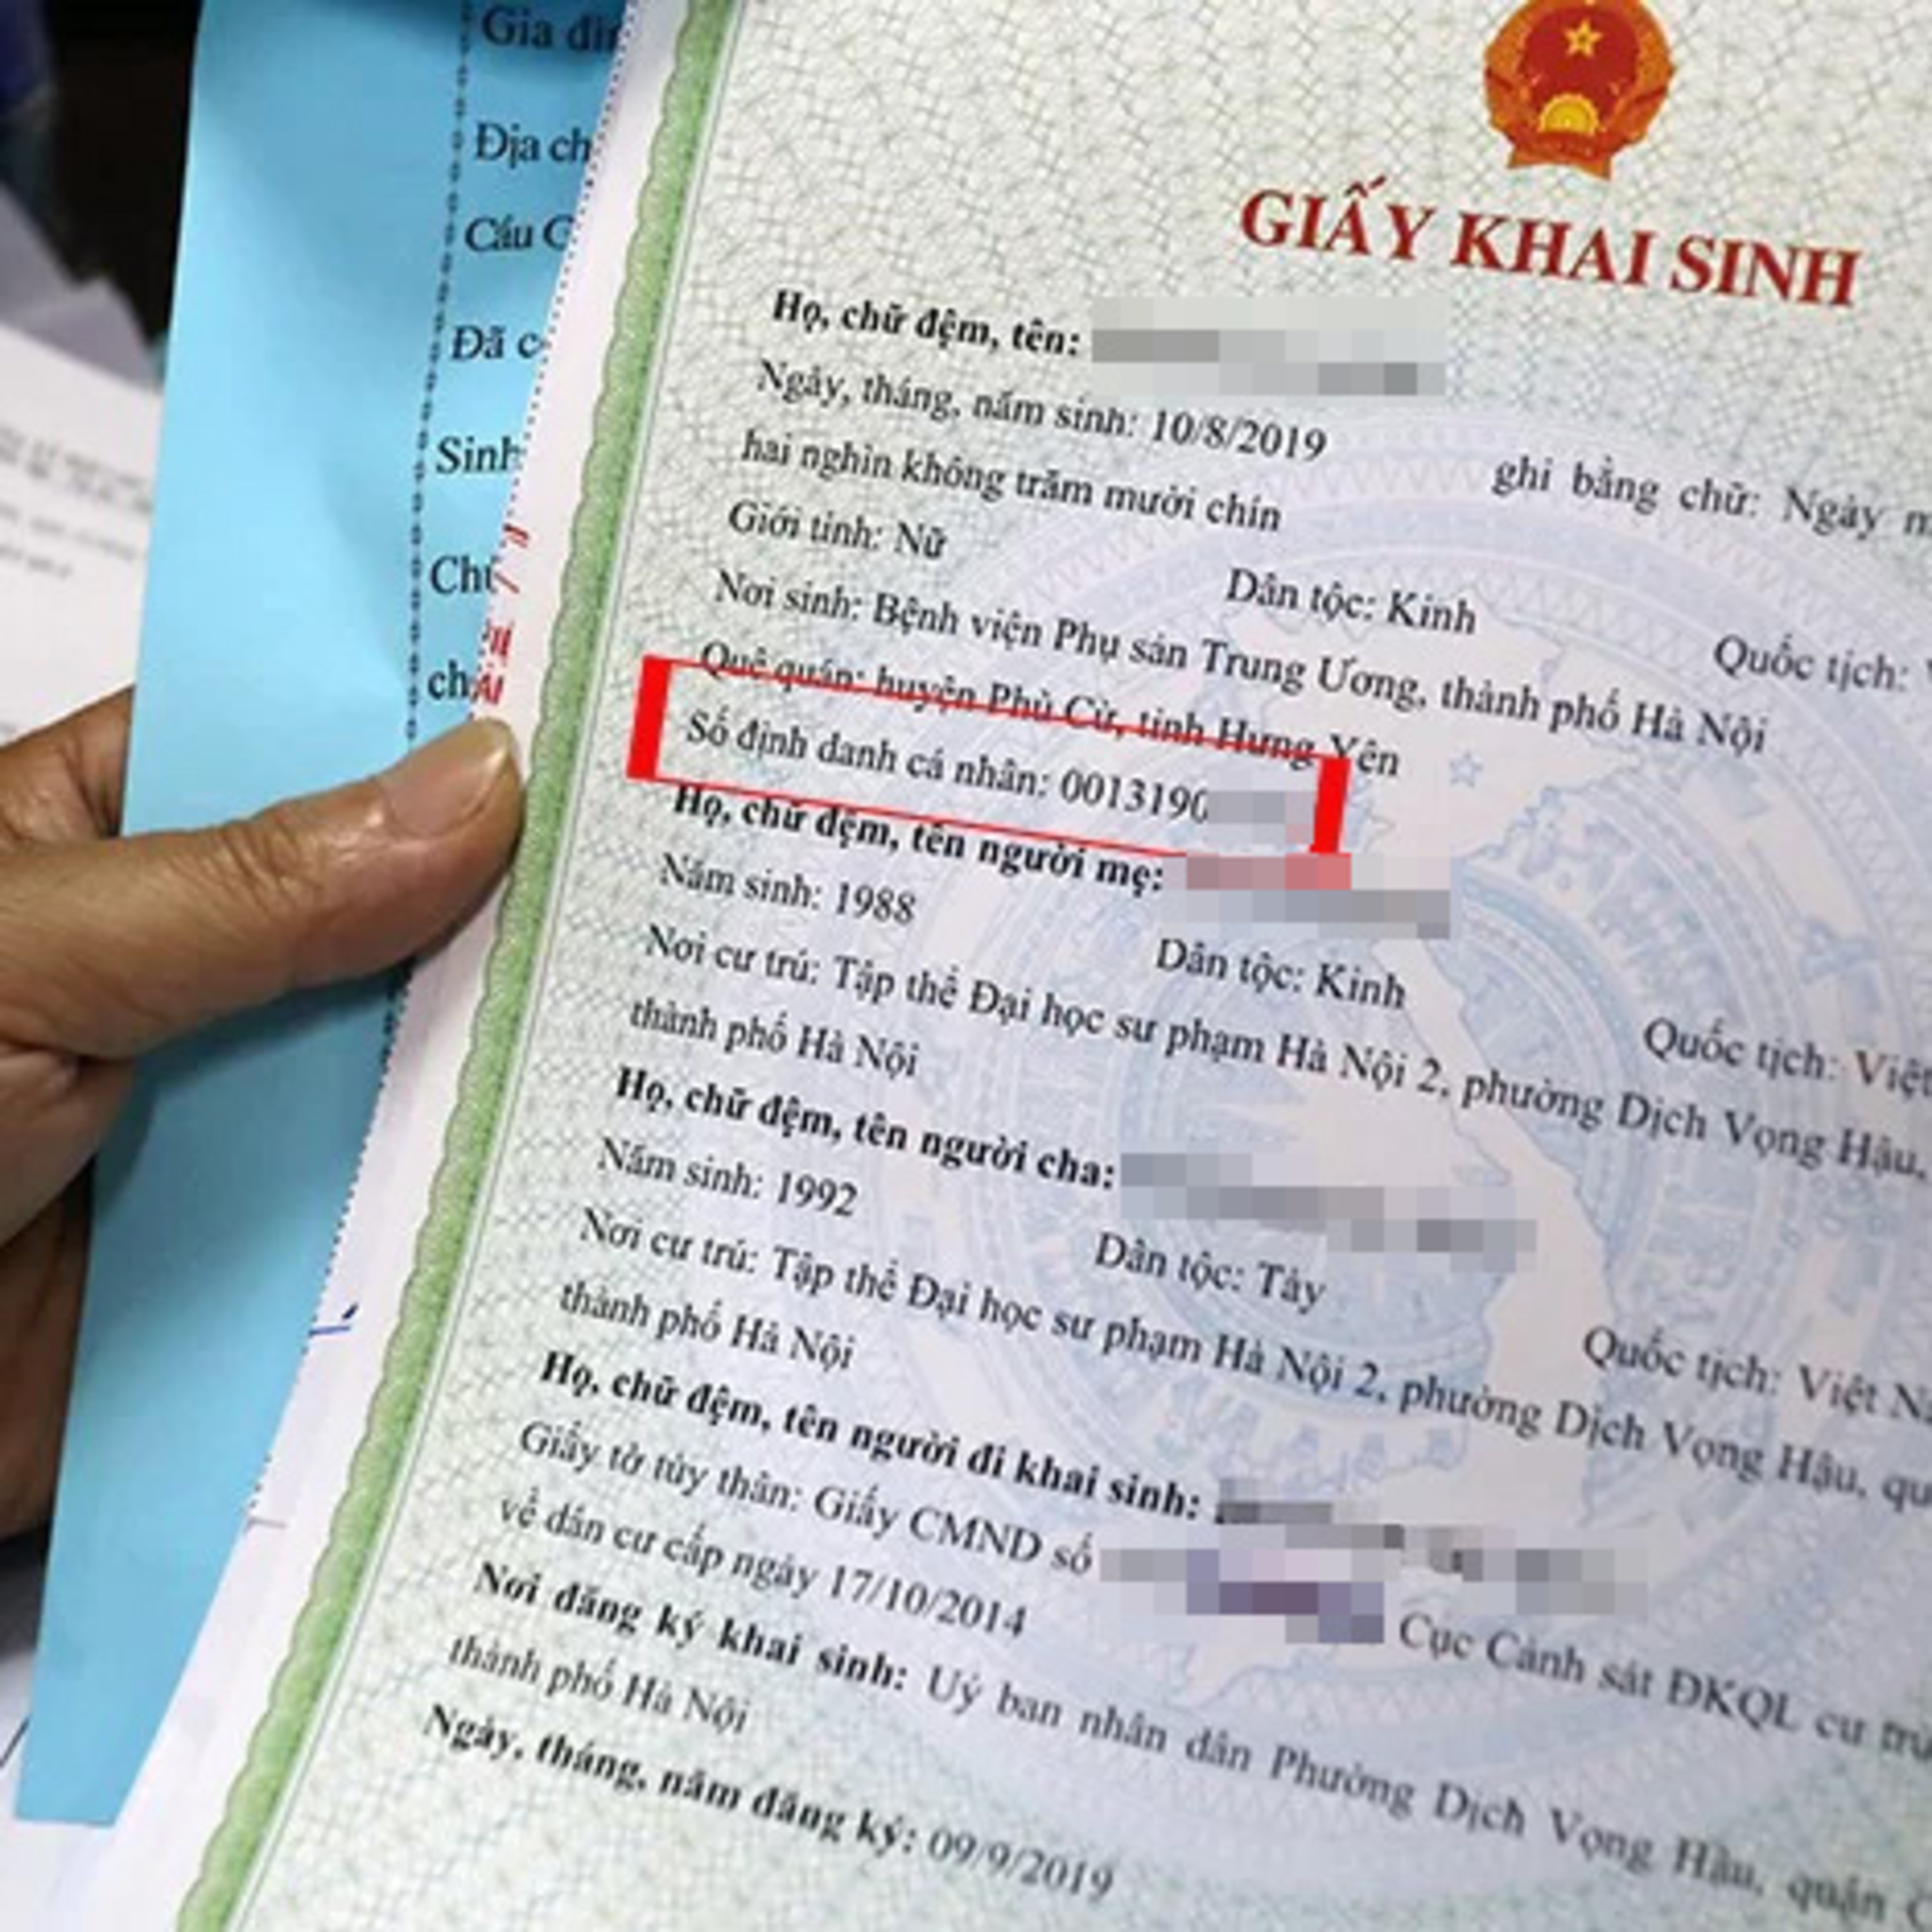 Gia đìn
Địa ch
Cấu G
Đã c
Sinh
Chủ
ch
GIẤY KHAI SINH
Họ, chữ đệm, tên:
Ngày, tháng, năm sinh: 10/8/2019 ghi bằng chữ: Ngày m
hai nghìn không trăm mười chín
Giới tính: Nữ Dân tộc: Kinh Quốc tịch:
Nơi sinh: Bệnh viện Phụ sản Trung Ương, thành phố Hà Nội
Quê quán: huyện Phù Cừ, tỉnh Hưng Yên
Số định danh cá nhân: 0013190
Họ, chữ đệm, tên người mẹ:
Năm sinh: 1988 Dân tộc: Kinh Quốc tịch: Việt
Nơi cư trú: Tập thể Đại học sư phạm Hà Nội 2, phường Dịch Vọng Hậu,
thành phố Hà Nội
Họ, chữ đệm, tên người cha:
Năm sinh: 1992 Dân tộc: Tày Quốc tịch: Việt N
Nơi cư trú: Tập thể Đại học sư phạm Hà Nội 2, phường Dịch Vọng Hậu, qu
thành phố Hà Nội
Họ, chữ đệm, tên người đi khai sinh:
Giấy tờ tùy thân: Giấy CMND số Cục Cảnh sát ĐKQL cư trú
về dân cư cấp ngày 17/10/2014
Nơi đăng ký khai sinh: Uỷ ban nhân dân Phường Dịch Vọng Hậu, quận C
thành phố Hà Nội
Ngày, tháng, năm đăng ký: 09/9/2019